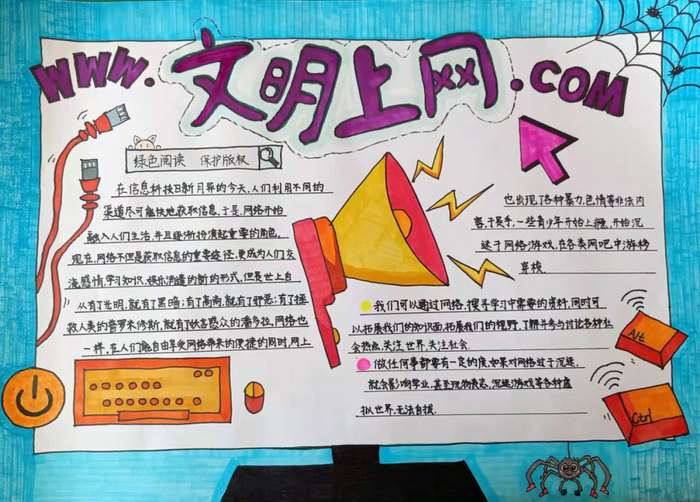 WWW.文明上网.COM
绿色阅读 保护版权
在信息科技日新月异的今天,人们利用不同的
渠道尽可能快地获取信息,于是,网络开始
融入人们生活,并且逐渐扮演起重要的角色。
现在,网络不但是获取信息的重要途径,更成为人们交
流感情,学习知识,娱乐消遣的新的形式,但是世上自
从有了光明,就有了黑暗;有了高尚,就有了邪恶;有了拯
救人类的普罗米修斯,就有了妖言惑众的潘多拉,网络也
一样,在人们能自由享受网络带来的便捷的同时,网上
也出现了各种暴力,色情等非法内
容,于是乎,一些青少年开始上瘾,开始沉
迷于网络游戏,在各类网吧中游移
穿梭.
我们可以通过网络,搜寻学习中需要的资料,同时可
以拓展我们的知识面,拓展我们的视野,了解并参与讨论各种社
会热点,关注世界,关注社会
做任何事都要有一定的度,如果对网络过于沉迷.
就会影响学业,甚至玩物丧志,沉迷游戏等各种虚
拟世界,无法自拔.
Alt
Ctrl